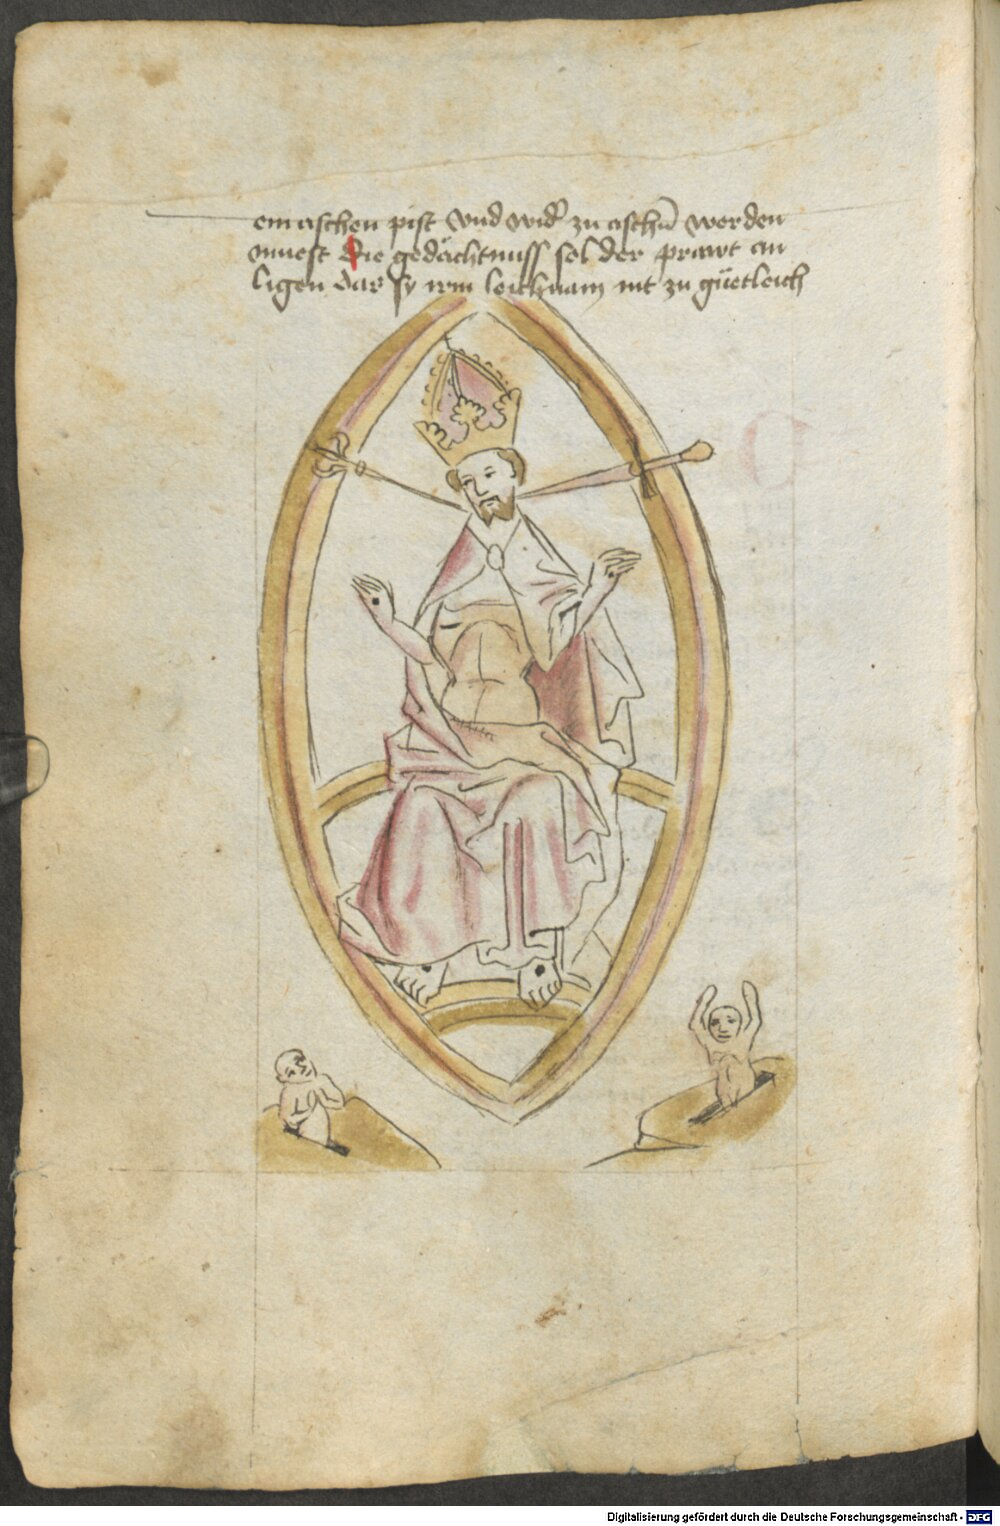 ein aschen pist vnd wid̾ zu aschn̄ werden
muest Die gedächtnuss sol der prawt an
ligen dar sy irm leichnam nit zu güetleich
Digitalisierung gefördert durch die Deutsche Forschungsgemeinschaft - DFG